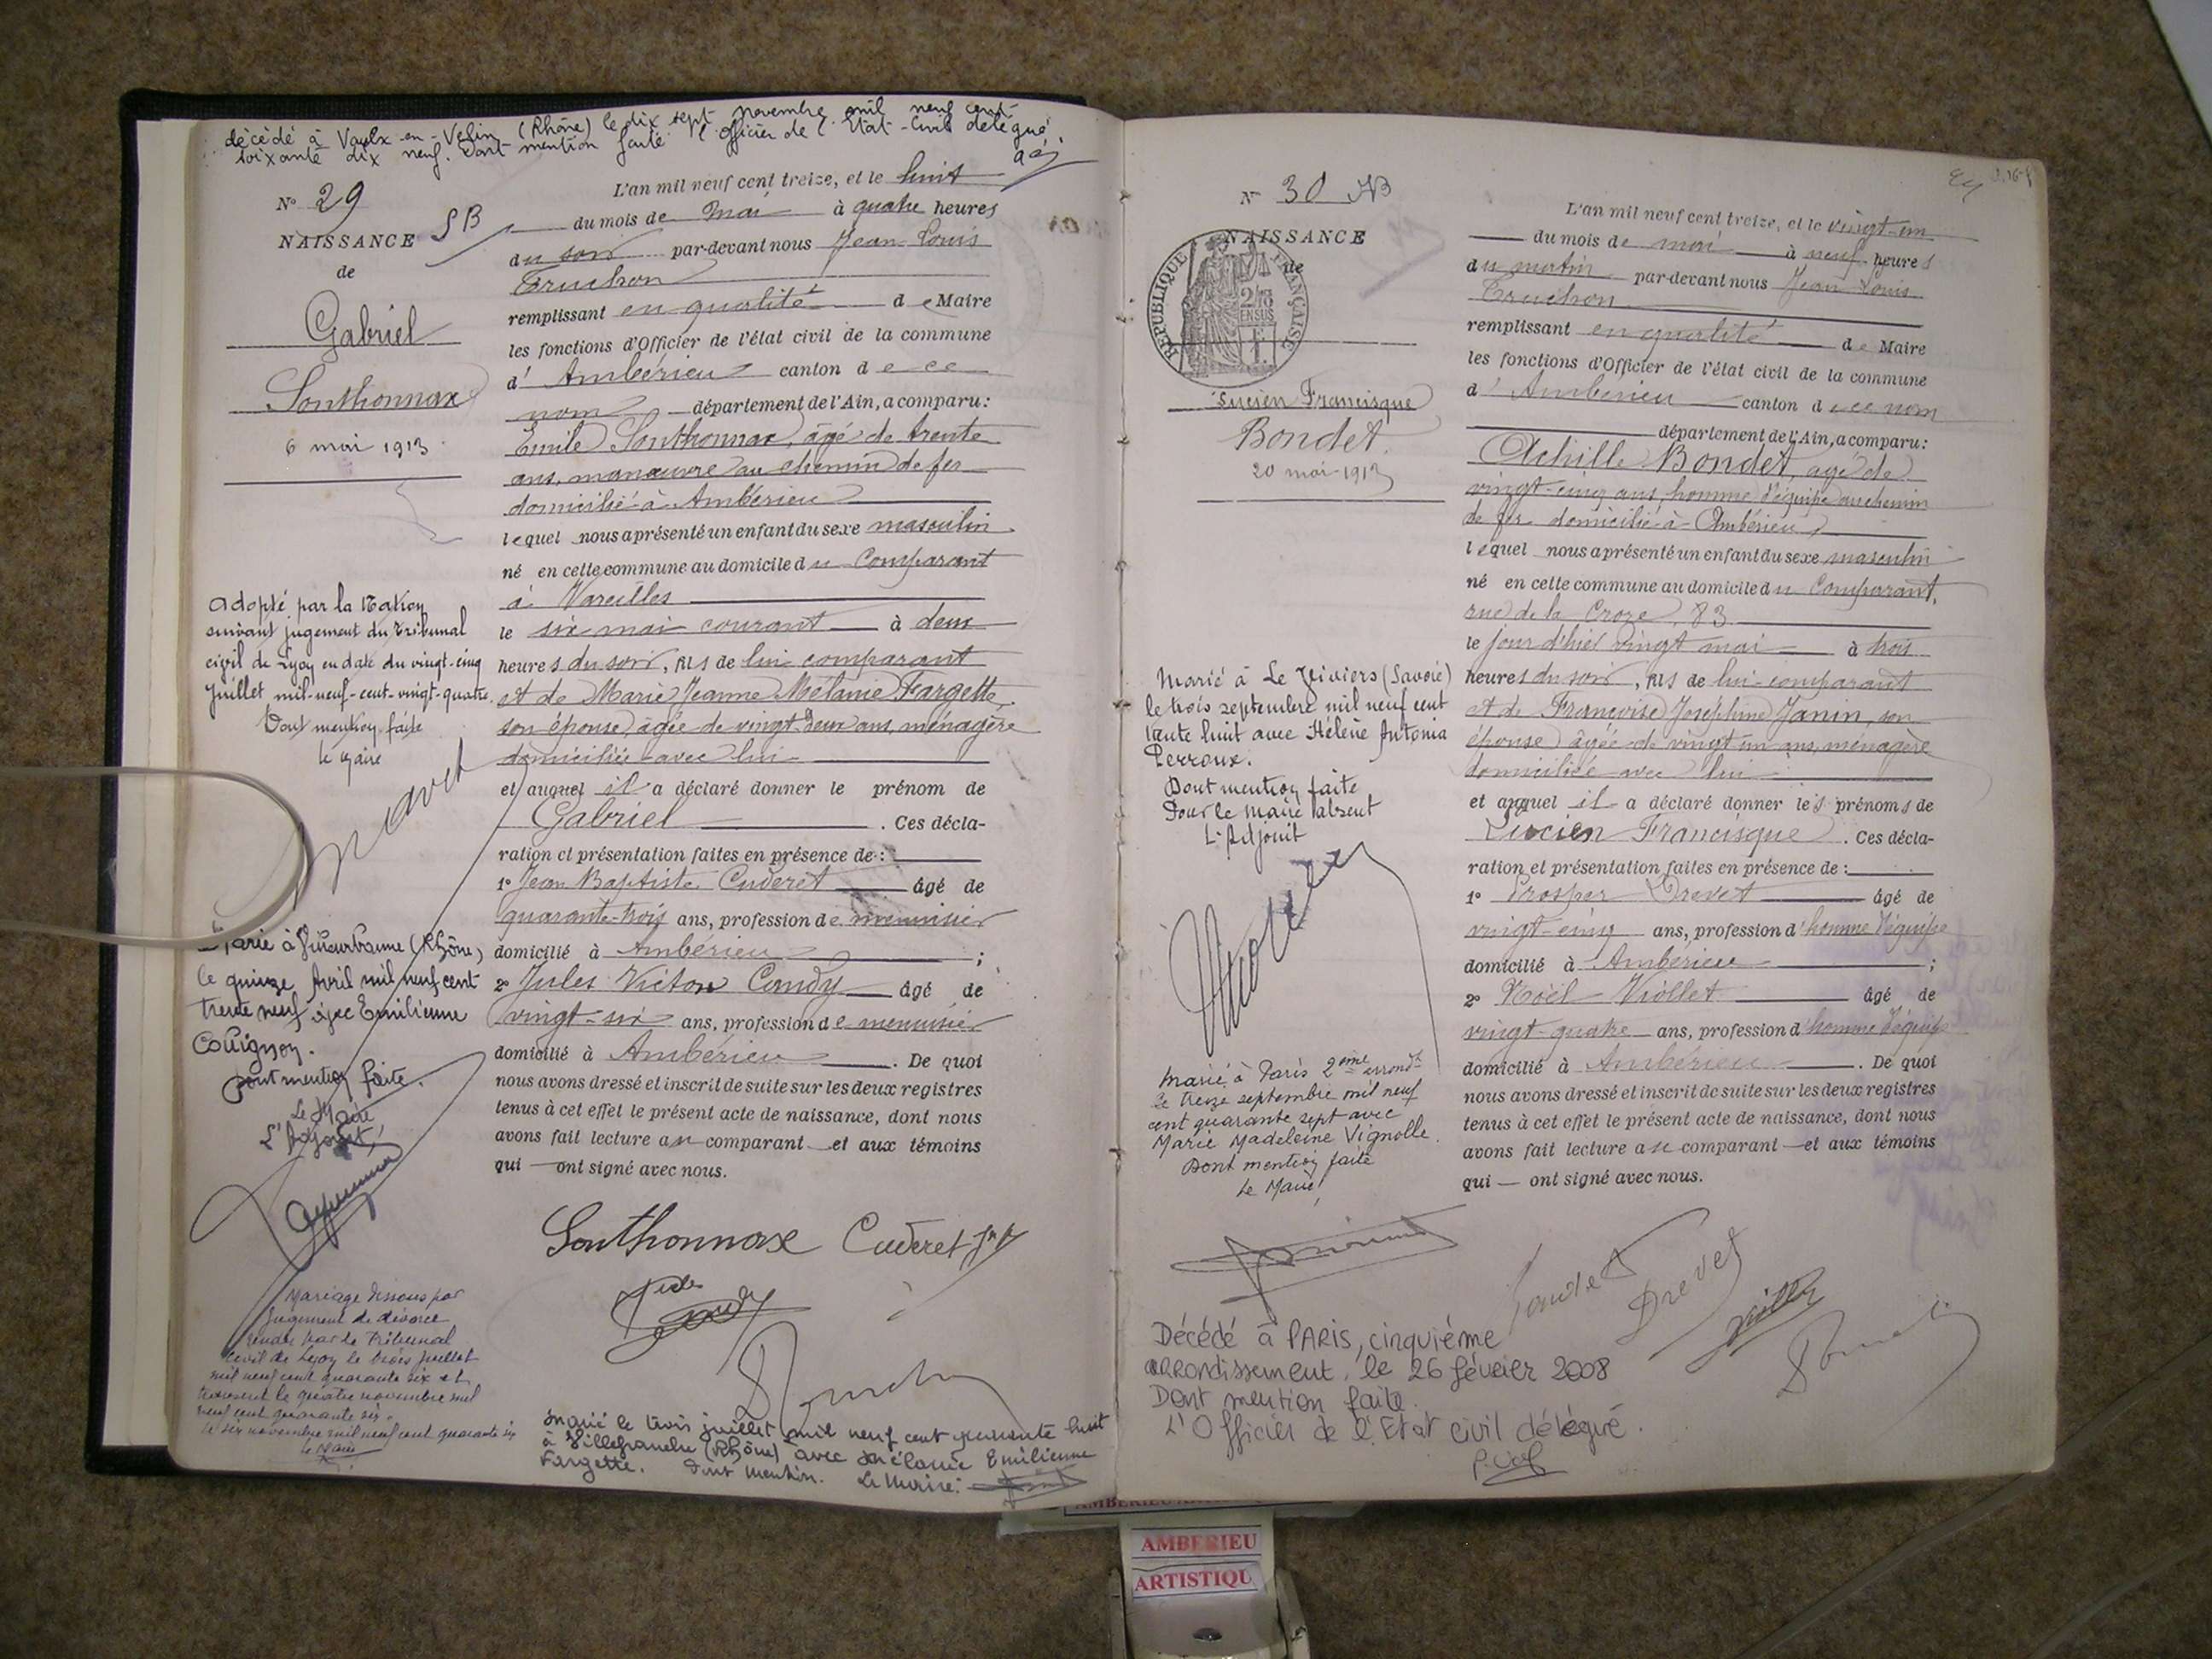 décédé à Vaulx-en-Velin (Rhône) le dix sept novembre mil neuf cent
soixante dix neuf. Dont mention faite l'officier de l'Etat-Civil délégué
N° 29
SB
NAISSANCE
de
Gabriel
Sonthonnax
6 mai 1913
adopté par la Nation
suivant jugement du Tribunal
civil de Lyon en date du vingt-cinq
juillet mil-neuf-cent-vingt-quatre
Dont mention faite
le Maire
Marié à Villeurbanne (Rhône)
le quinze Avril mil neuf cent
trente neuf avec Emilienne
Dont mention faite.
Le Maire
L'Adjoint
Mariage dissous par
jugement de divorce
rendu par le Tribunal
civil de Lyon le trois juillet
mil neuf cent quarante six et
transcrit le quatre novembre mil
neuf cent quarante six.
le six novembre mil neuf cent quarante six
le Maire
L'an mil neuf cent treize, et le huit
du mois de mai à quatre heures
du soir par-devant nous Jean-Louis
Truchon
remplissant en qualité de Maire
les fonctions d'Officier de l'état civil de la commune
d'Ambérieu canton de ce
nom département de l'Ain, a comparu :
Emile Sonthonnax, âgé de trente
ans, manœuvre au chemin de fer
domicilié à Ambérieu
lequel nous a présenté un enfant du sexe masculin
né en cette commune au domicile du Comparant
à Vareilles
le six mai courant à deux
heures du soir, fils de lui comparant
et de Marie Jeanne Mélanie Fargette,
son épouse, âgée de vingt-deux ans, ménagère
domiciliée avec lui
et auquel il a déclaré donner le prénom de
Gabriel . Ces décla-
ration et présentation faites en présence de :
1° Jean Baptiste Cuderet âgé de
quarante-trois ans, profession de menuisier
domicilié à Ambérieu ;
2° Jules Victor Candy âgé de
vingt-six ans, profession de menuisier
domicilié à Ambérieu . De quoi
nous avons dressé et inscrit de suite sur les deux registres
tenus à cet effet le présent acte de naissance, dont nous
avons fait lecture au comparant et aux témoins
qui ont signé avec nous.
Sonthonnax Cuderet
Marié le trois juillet mil neuf cent quarante huit
à Villefranche (Rhône) avec Mélanie Emilienne
Fargette. Dont mention. Le Maire:
N° 30
NAISSANCE
de
REPUBLIQUE FRANÇAISE
Lucien Francisque
Bondet
20 mai 1913
Marié à Le Viviers (Savoie)
le trois septembre mil neuf cent
trente huit avec Hélène Antonia
Perroux.
Dont mention faite
Pour le Maire absent
L'Adjoint
Marié à Paris 2ème arrondt
le treize septembre mil neuf
cent quarante sept avec
Marie Madeleine Vignolle.
Dont mention faite
Le Maire
L'an mil neuf cent treize, et le vingt-un
du mois de mai à neuf heures
du matin par-devant nous Jean Louis
Truchon
remplissant en qualité de Maire
les fonctions d'Officier de l'état civil de la commune
d'Ambérieu canton de ce nom
département de l'Ain, a comparu :
Achille Bondet, agé de
vingt-cinq ans, homme d'équipe au chemin
de fer domicilié à Ambérieu
lequel nous a présenté un enfant du sexe masculin
né en cette commune au domicile du Comparant,
rue de la Croze, 83
le jour d'hier vingt mai à trois
heures du soir, fils de lui comparant
et de Françoise Joséphine Janin, son
épouse âgée de vingt un ans, ménagère
domiciliée avec lui
et auquel il a déclaré donner les prénoms de
Lucien Francisque . Ces décla-
ration et présentation faites en présence de :
1° Prosper Drevet âgé de
vingt-cinq ans, profession d'homme d'équipe
domicilié à Ambérieu ;
2° Noël Viollet âgé de
vingt-quatre ans, profession d'homme d'équipe
domicilié à Ambérieu . De quoi
nous avons dressé et inscrit de suite sur les deux registres
tenus à cet effet le présent acte de naissance, dont nous
avons fait lecture au comparant et aux témoins
qui ont signé avec nous.
Bondet Drevet
Décédé à PARIS, cinquième
arrondissement, le 26 février 2008
Dont mention faite.
L'Officier de l'Etat civil délégué.
AMBERIEU
ARTISTIQU